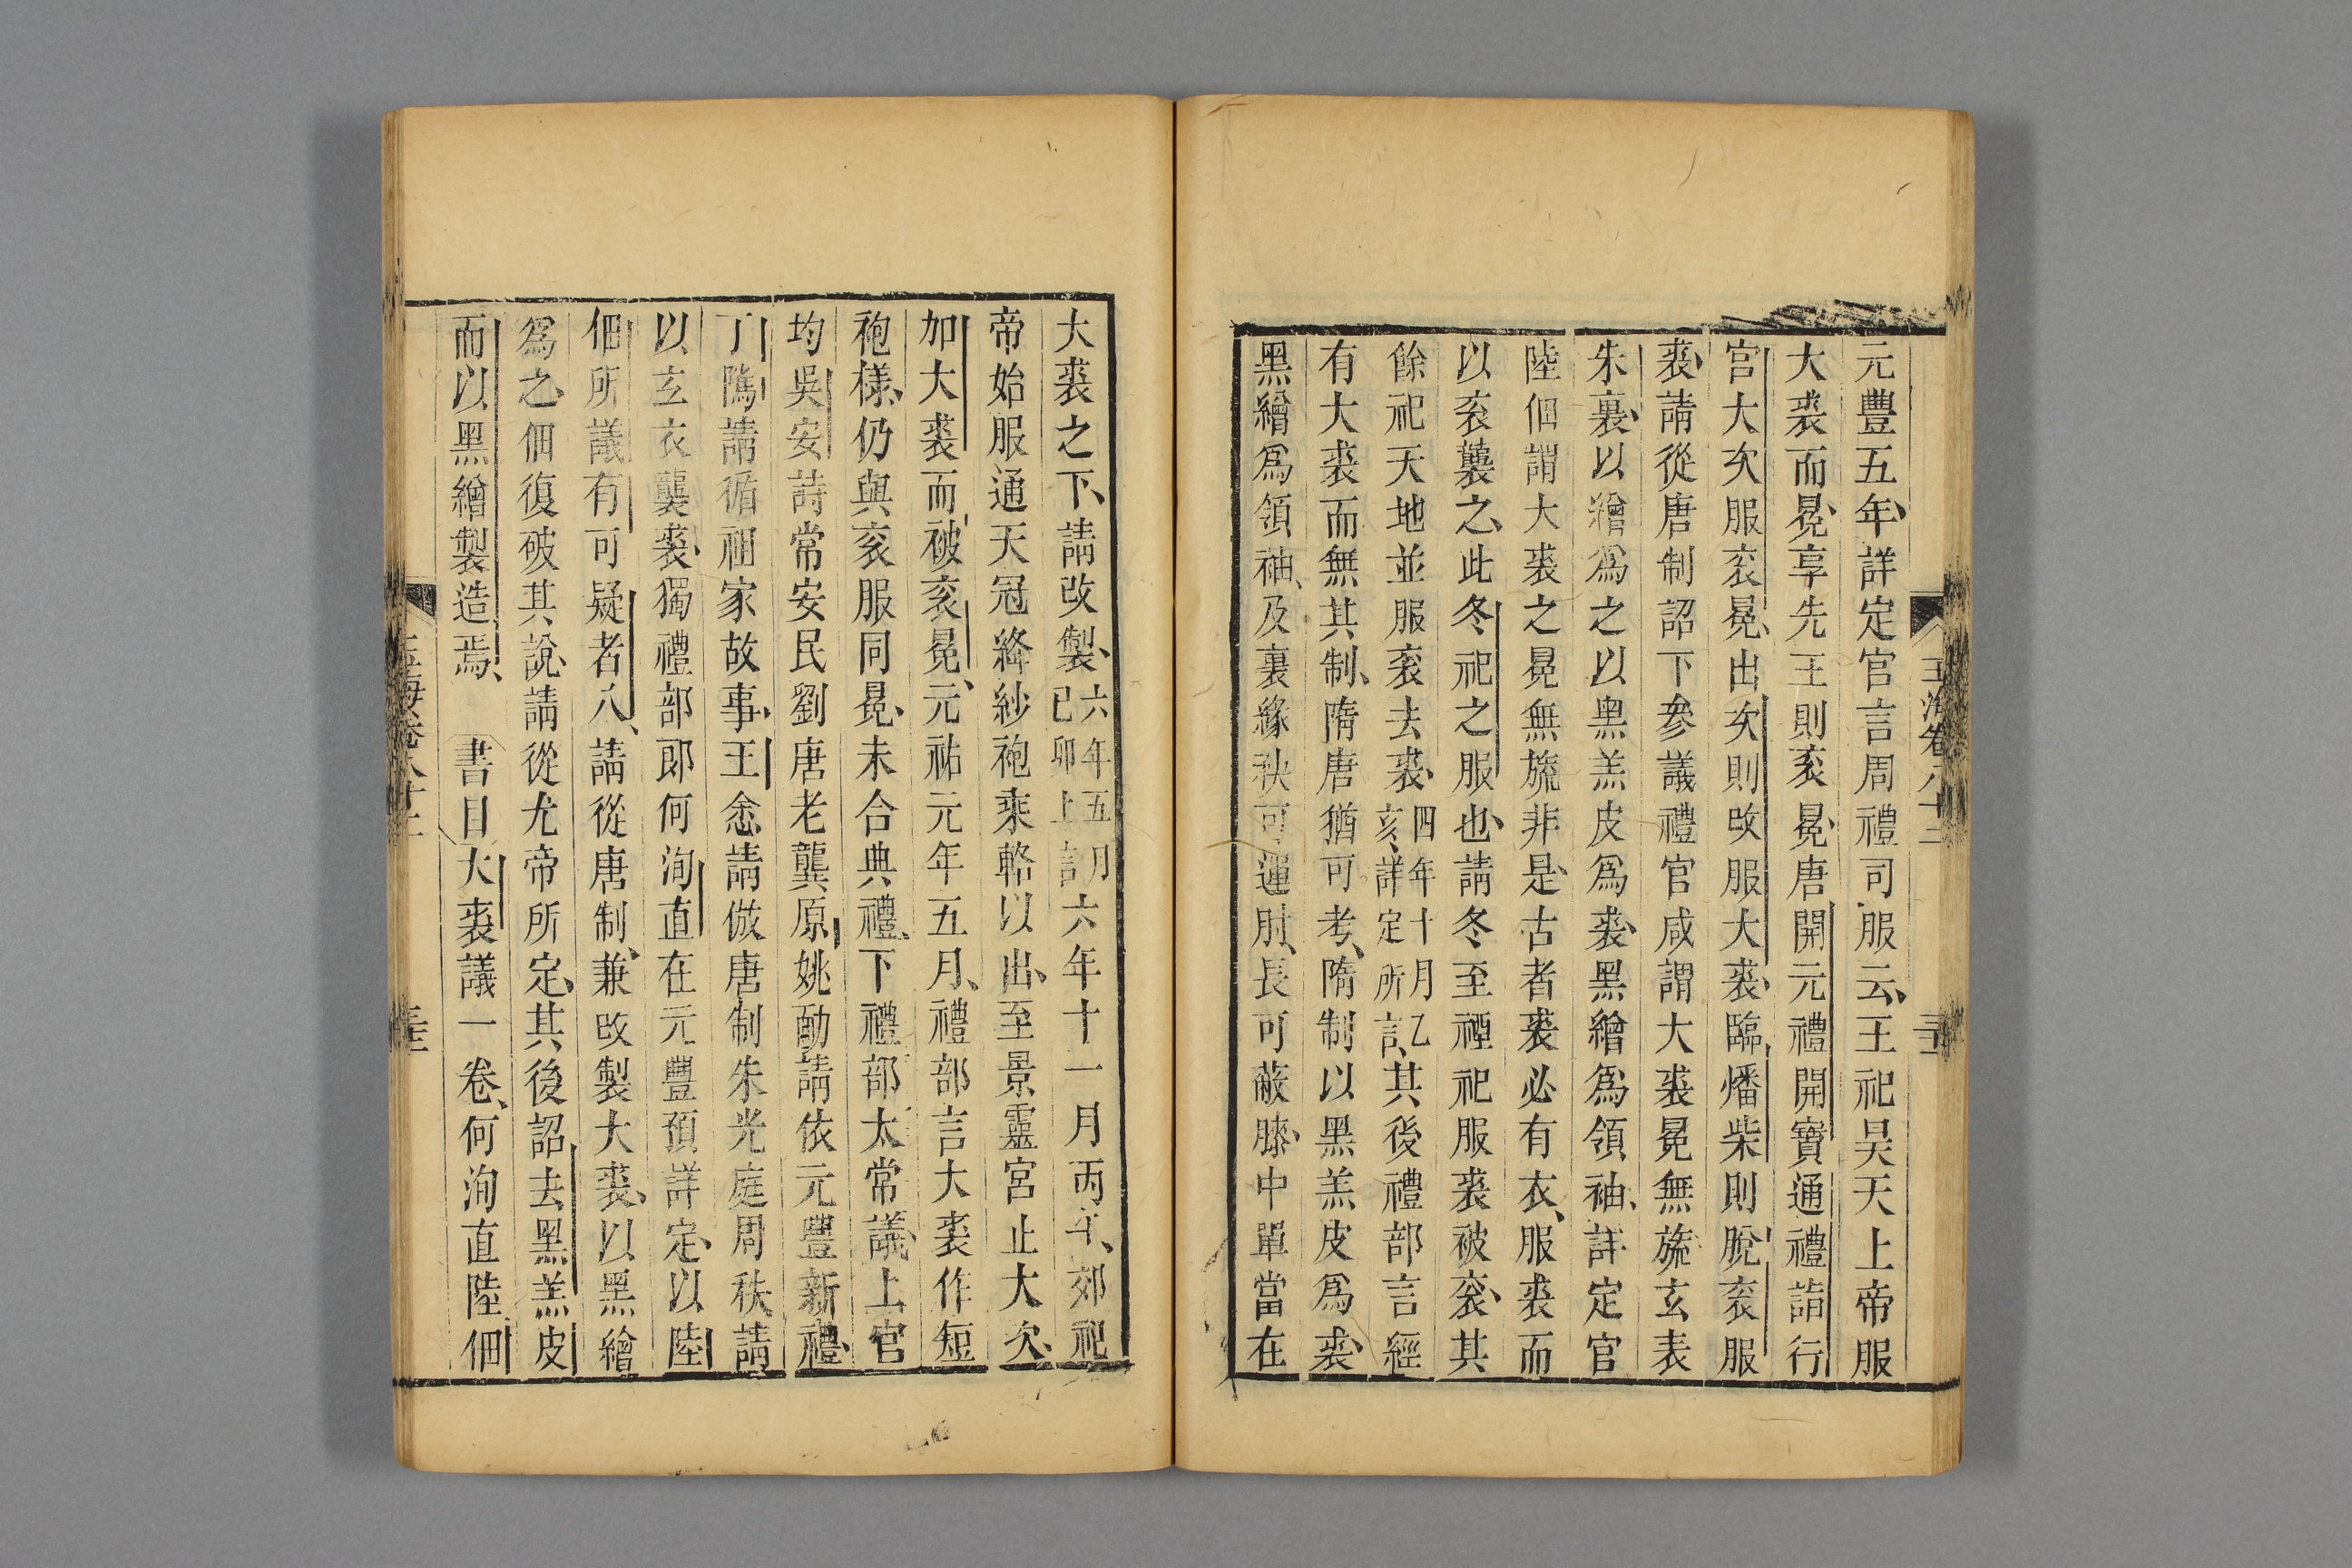 元豐五年詳定官言周禮司服云王祀昊天上帝服
大裘而冕享先王則衮冕唐開元禮開寶通禮詣行
宮大次服衮冕出次則改服大裘臨燔柴則脫衮服
裘請從唐制詔下參議禮官咸謂大裘冕無旒玄表
朱裏以繒爲之以黑羔皮爲裘黑繒爲領袖詳定官
陸佃謂大裘之冕無旒非是古者裘必有衣服裘而
以衮襲之此冬祀之服也請冬至禋祀服裘被衮其
餘祀天地並服衮去裘四年十月乙亥詳定所言其後禮部言經
有大裘而無其制隋唐猶可考隋制以黑羔皮爲裘
黑繒爲領袖及裏緣袂可運肘長可蔽膝中單當在
大裘之下請改製六年五月己卯上詔六年十一月丙午郊祀
帝始服通天冠絳紗袍乘輅以出至景靈宮止大次
加大裘而被衮冕元祐元年五月禮部言大裘作短
袍樣仍與衮服同冕未合典禮下禮部太常議上官
均吳安詩常安民劉唐老龔原姚勔請依元豐新禮
丁隲請循祖家故事王悆請倣唐制朱光庭周秩請
以玄衣襲裘獨禮部郎何洵直在元豐預詳定以陸
佃所議有可疑者八請從唐制兼改製大裘以黑繒
爲之佃復破其說請從尤帝所定其後詔去黑羔皮
而以黑繒製造焉 書目大裘議一卷何洵直陸佃